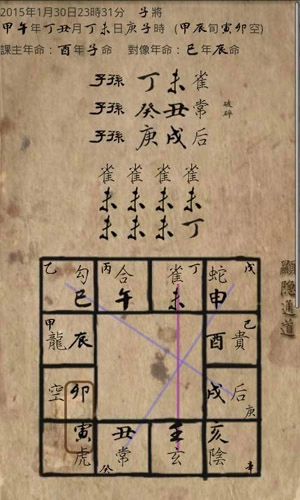 2015年1月30日23時31分 子將
甲午年丁丑月丁未日庚子時 (甲辰旬寅卯空)
課主年命：酉年子命 對像年命：巳年辰命
子孫 丁 未 雀
子孫 癸 丑 常 破碎
子孫 庚 戌 后
雀 雀 雀 雀
未 未 未 未
未 未 未 丁
乙 勾 丙 合 雀 丁 蛇 戊
巳 午 未 申
甲 龍 辰 酉 貴 己
顯隱通道
空 卯 戌 后 庚
寅 丑 壬 亥
虎 常 癸 玄 陰 辛